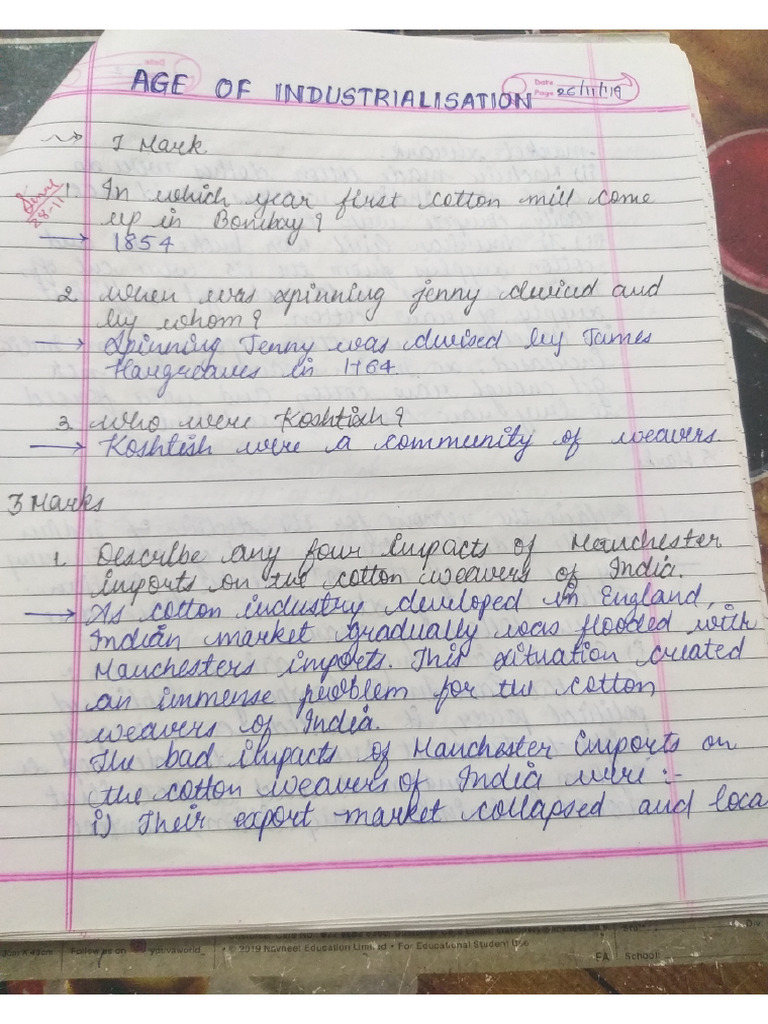 AGE OF INDUSTRIALISATION
Date
Page 26/11/19
1 Mark
28-11
1. In which year first cotton mill come
up in Bombay?
→ 1854
2. When was spinning jenny devised and
by whom?
→ Spinning Jenny was devised by James
Hargreaves in 1764.
3. Who were Koshtish?
→ Koshtish were a community of weavers
3 Marks
1. Describe any four impacts of Manchester
imports on the cotton weavers of India.
→ As cotton industry developed in England,
Indian market gradually was flooded with
Manchesters imports. This situation created
an immense problem for the cotton
weavers of India.
The bad impacts of Manchester Imports on
the cotton weavers of India were :-
i) Their export market collapsed and loca
Follow us on youvaworld_ © 2019 Navneet Education Limited • For Educational Student Use
FA School: